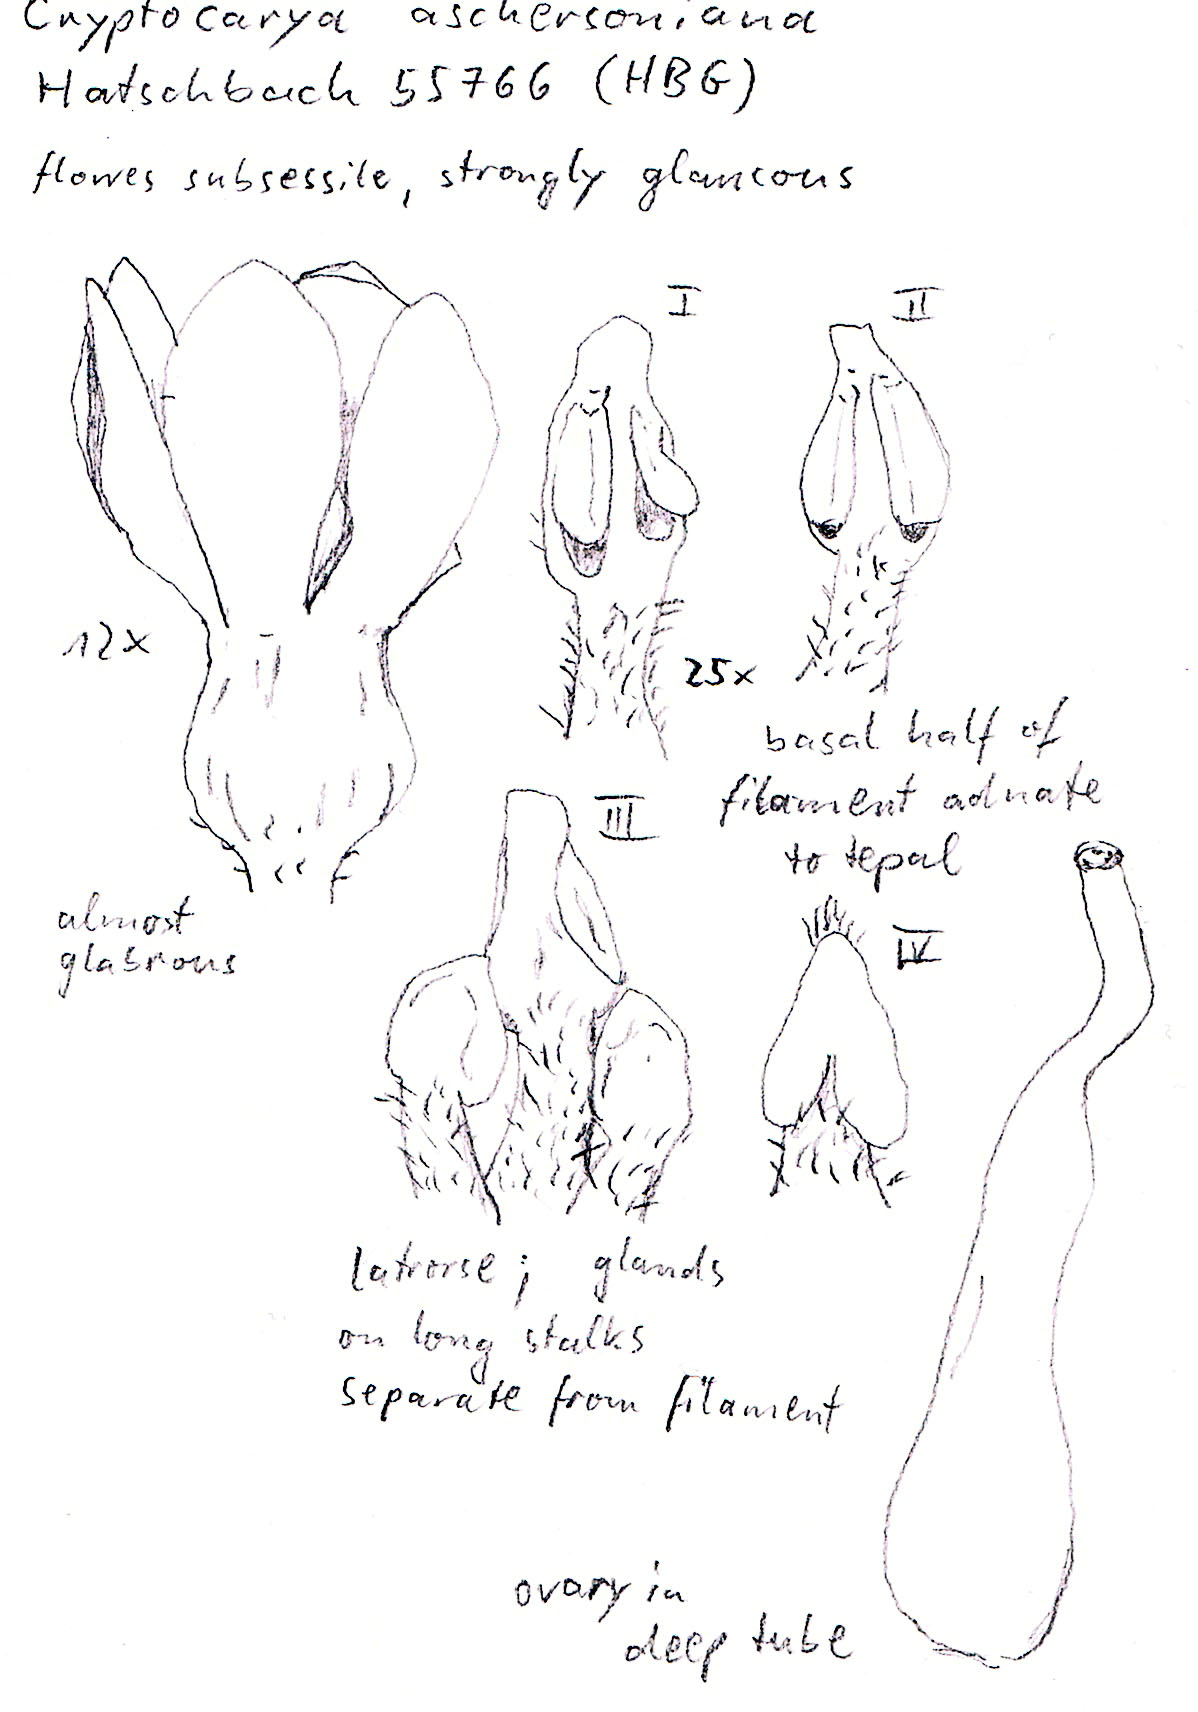 Cryptocarya aschersoniana
Hatschbach 55766 (HBG)
flowes subsessile, strongly glaucous
I
II
12x
25x
basal half of
filament adnate
to tepal
III
almost
glabrous
IV
latrorse; glands
on long stalks
separate from filament
ovary in
deep tube